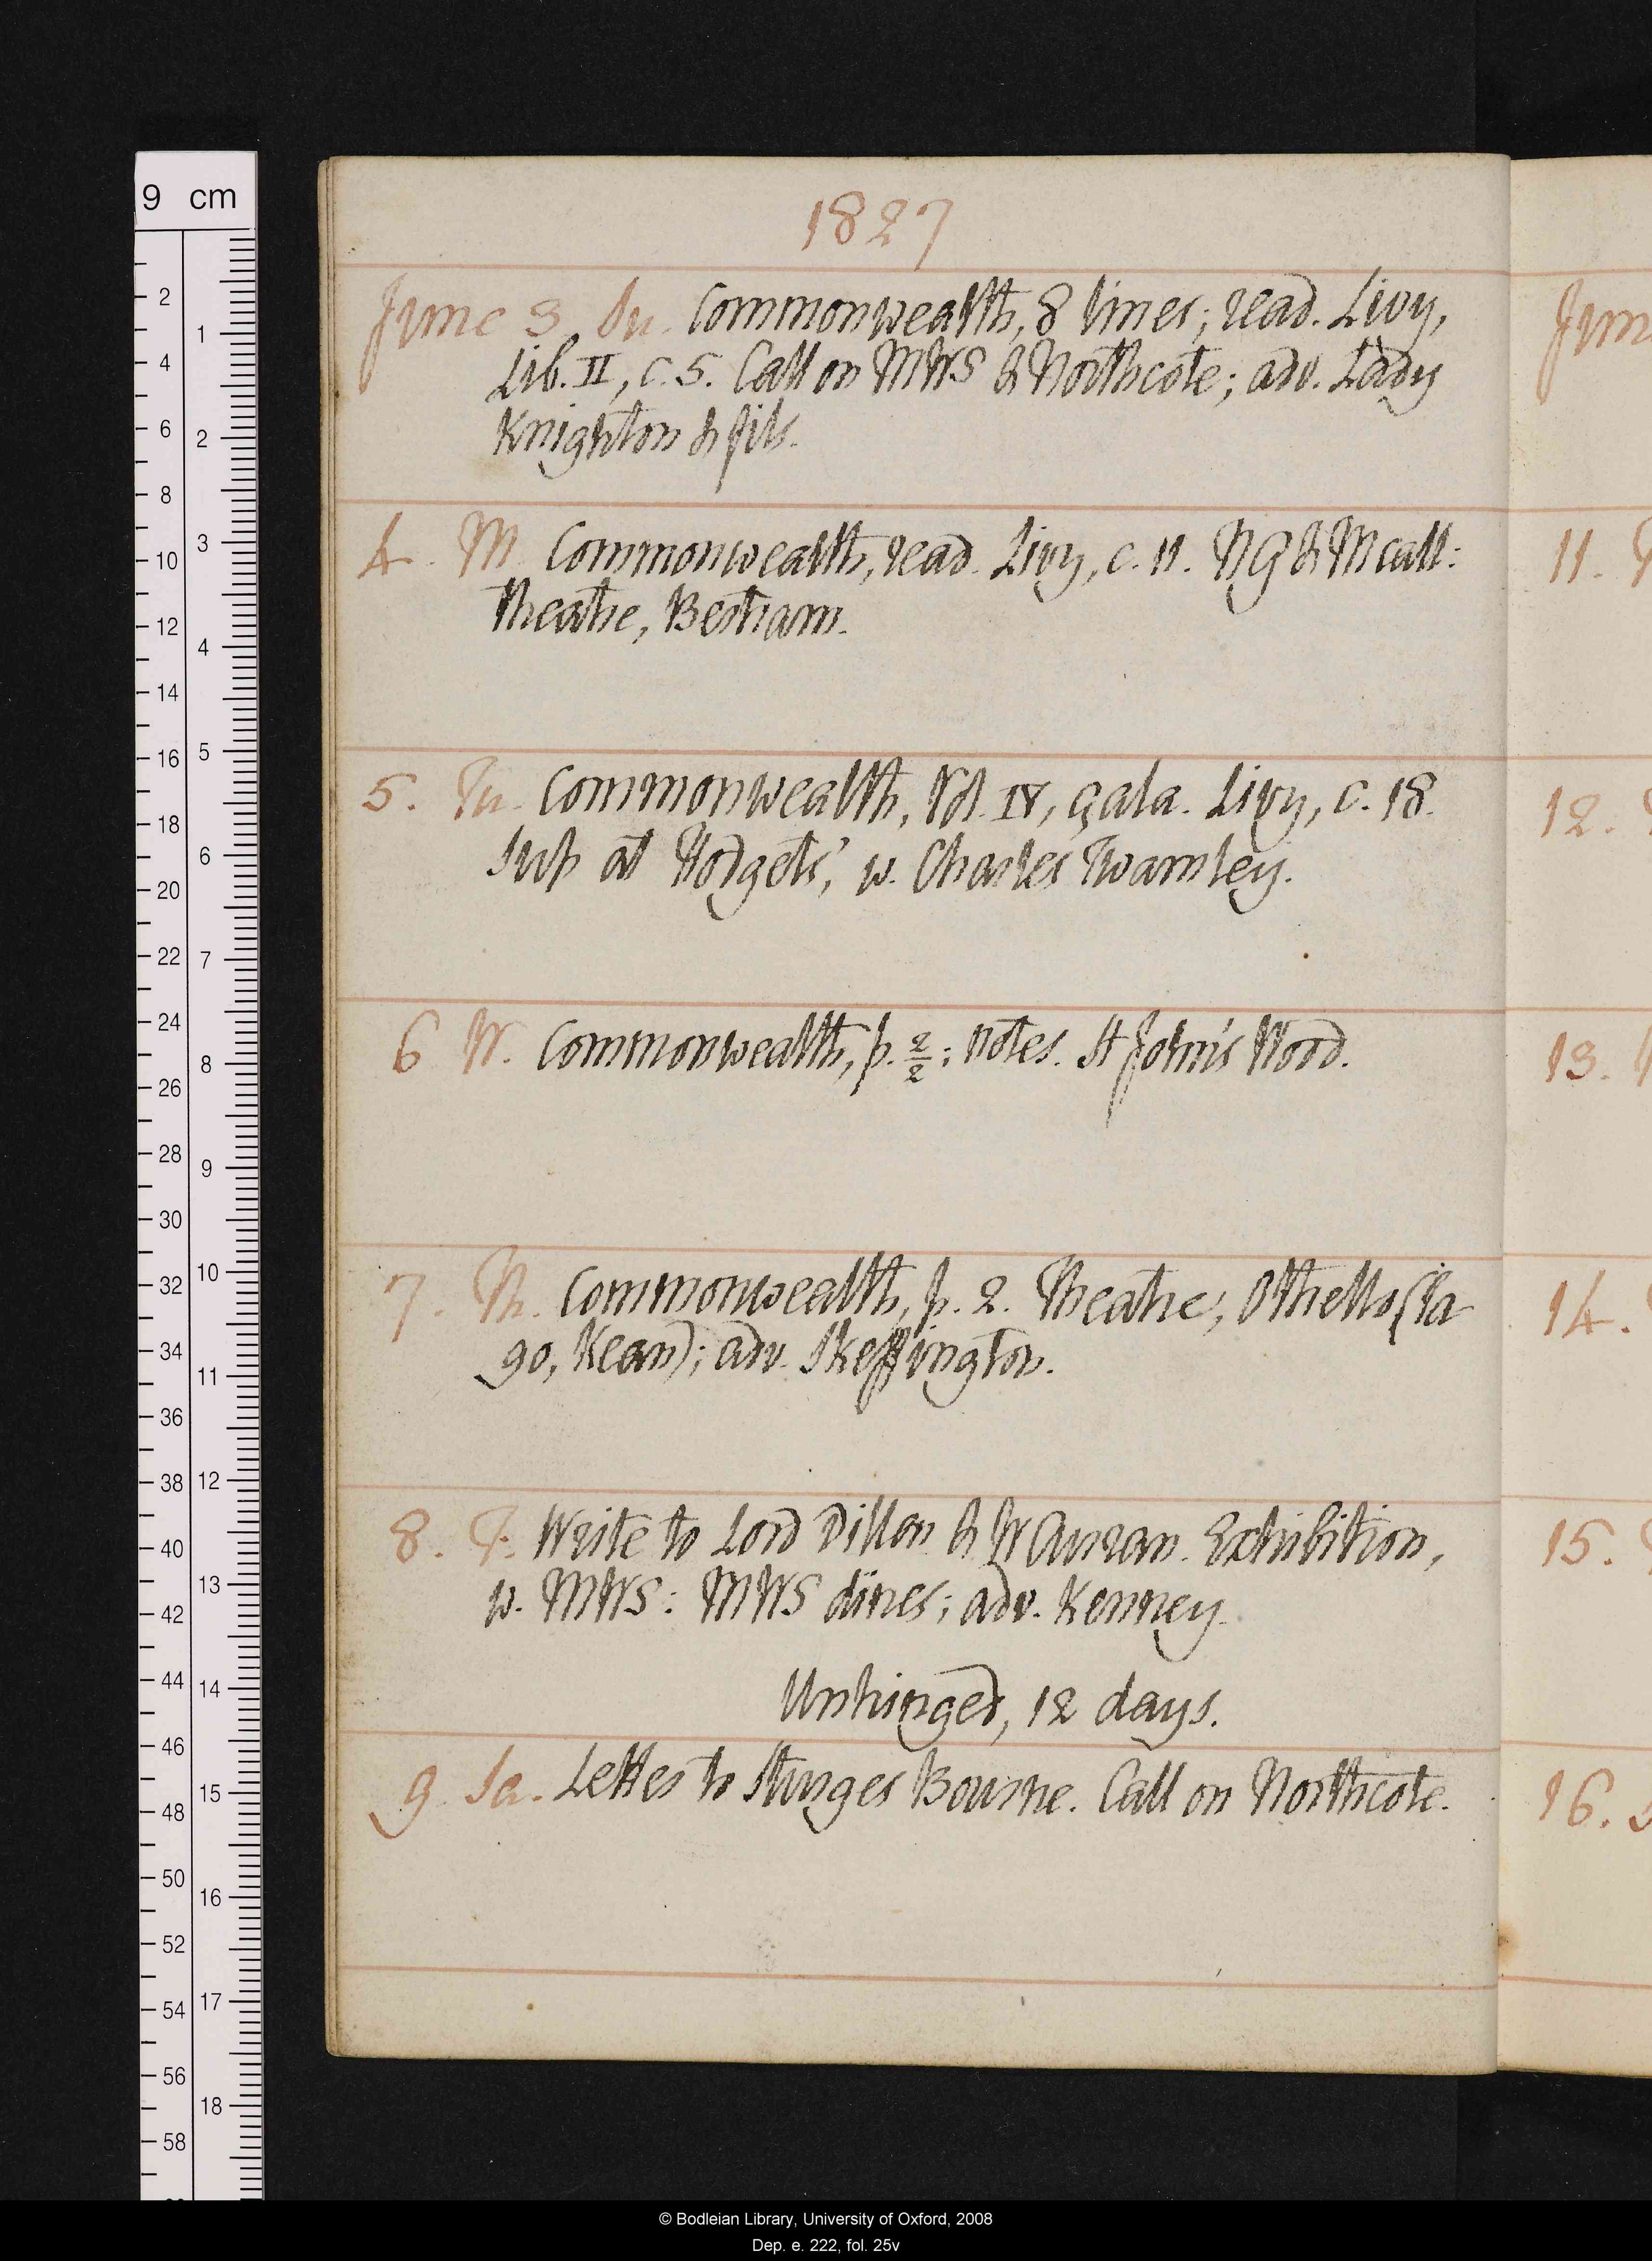 1827
June 3. Su. Commonwealth, 8 lines; read. Livy,
Lib. II, c. 5. Call on MWS & Northcote; adv. Lady
Knighton & fils.
4. M. Commonwealth, read. Livy, c. 11. NG & M call:
theatre, Bertram.
5. Tu. Commonwealth, Vol. IV, çala. Livy, c. 18.
Sup at Hodgets', w. Charles Twamley.
6 W. Commonwealth, p. 2/2; notes. St John's Wood.
7. Th. Commonwealth, p. 2. Theatre, Othello (Ia-
go, Kean); adv. Skeffington.
8. F. Write to Lord Dillon & W Curran. Exhibition,
w. MWS: MWS dines; adv. Kenney.
Unhinged, 12 days.
9. Sa. Letter to Sturges Bourne. Call on Northcote.
June
11.
12.
13.
14.
15.
16.
9 cm
2
4
6
8
10
12
14
16
18
20
22
24
26
28
30
32
34
36
38
40
42
44
46
48
50
52
54
56
58
1
2
3
4
5
6
7
8
9
10
11
12
13
14
15
16
17
18
© Bodleian Library, University of Oxford, 2008
Dep. e. 222, fol. 25v